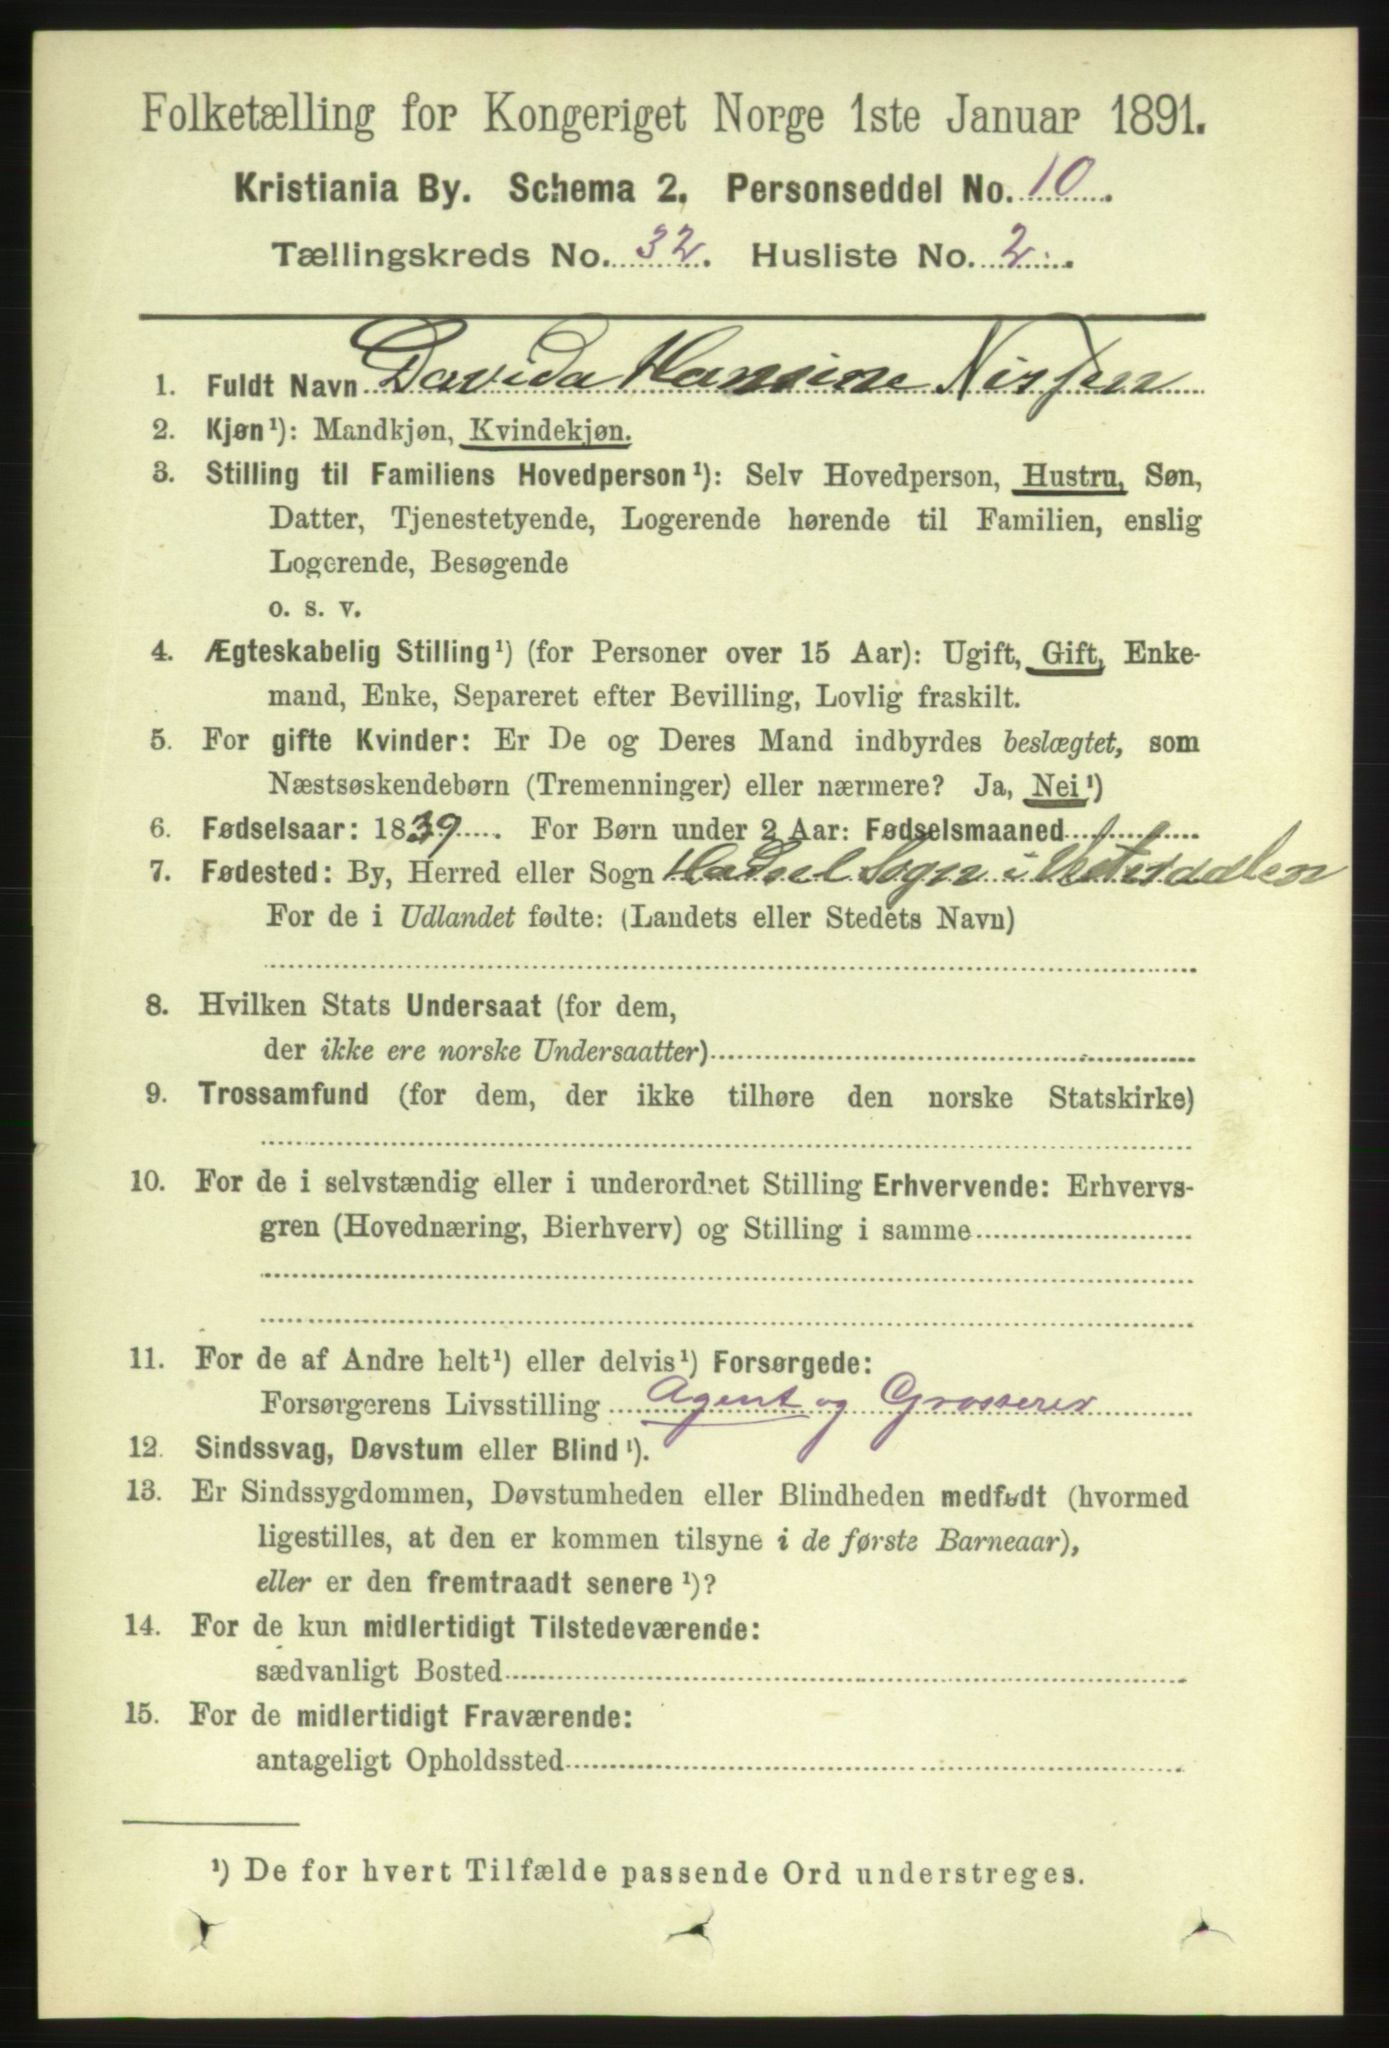 Folketælling for Kongeriget Norge 1ste Januar 1891.
Kristiania By. Schema 2. Personseddel No. 10.
Tællingskreds No. 32. Husliste No. 2.
1. Fuldt Navn Davida Hansine Nissen
2. Kjøn¹): Mandkjøn, Kvindekjøn.
3. Stilling til Familiens Hovedperson¹): Selv Hovedperson, Hustru, Søn,
Datter, Tjenestetyende, Logerende hørende til Familien, enslig
Logerende, Besøgende
o. s. v.
4. Ægteskabelig Stilling¹) (for Personer over 15 Aar): Ugift, Gift, Enke-
mand, Enke, Separeret efter Bevilling, Lovlig fraskilt.
5. For gifte Kvinder: Er De og Deres Mand indbyrdes beslægtet, som
Næstsøskendebørn (Tremenninger) eller nærmere? Ja, Nei¹)
6. Fødselsaar: 1839. For Børn under 2 Aar: Fødselsmaaned
7. Fødested: By, Herred eller Sogn Hadsel Sogn i Vesteraalen
For de i Udlandet fødte: (Landets eller Stedets Navn)
8. Hvilken Stats Undersaat (for dem,
der ikke ere norske Undersaatter)
9. Trossamfund (for dem, der ikke tilhøre den norske Statskirke)
10. For de i selvstændig eller i underordnet Stilling Erhvervende: Erhvervs-
gren (Hovednæring, Bierhverv) og Stilling i samme
11. For de af Andre helt¹) eller delvis¹) Forsørgede:
Forsørgerens Livsstilling Agent og Grosserer
12. Sindssvag, Døvstum eller Blind¹).
13. Er Sindssygdommen, Døvstumheden eller Blindheden medfødt (hvormed
ligestilles, at den er kommen tilsyne i de første Barneaar),
eller er den fremtraadt senere¹)?
14. For de kun midlertidigt Tilstedeværende:
sædvanligt Bosted
15. For de midlertidigt Fraværende:
antageligt Opholdssted
¹) De for hvert Tilfælde passende Ord understreges.